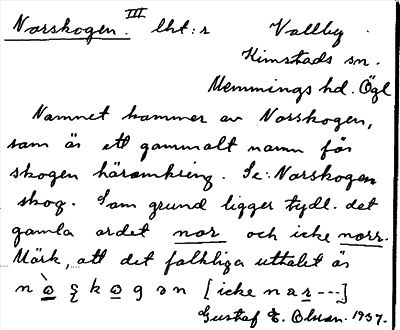 Norskogen. III lht:r Vallby
Kimstads sn.
Memmings hd. Ögl
Namnet kommer av Norskogen,
som är ett gammalt namn för
skogen häromkring. Se: Norskogen
skog. Som grund ligger tydl. det
gamla ordet nor och icke norr.
Märk, att det folkliga uttalet är
n o̱ ş k o̱ g ə n [icke n a r ---]
Gustaf E. Olson. 1937.